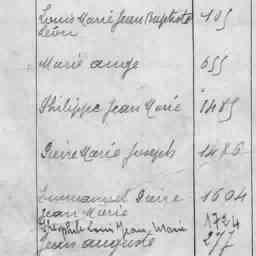 Louis Marie Jean Baptiste 105
Léon
Marie ange 655
Philippe Jean Marie 1485
Pierre Marie Joseph 1486
Emmanuel Pierre 1604
Jean Marie
Théophile Louis Jean Marie 1724
Jean auguste 277